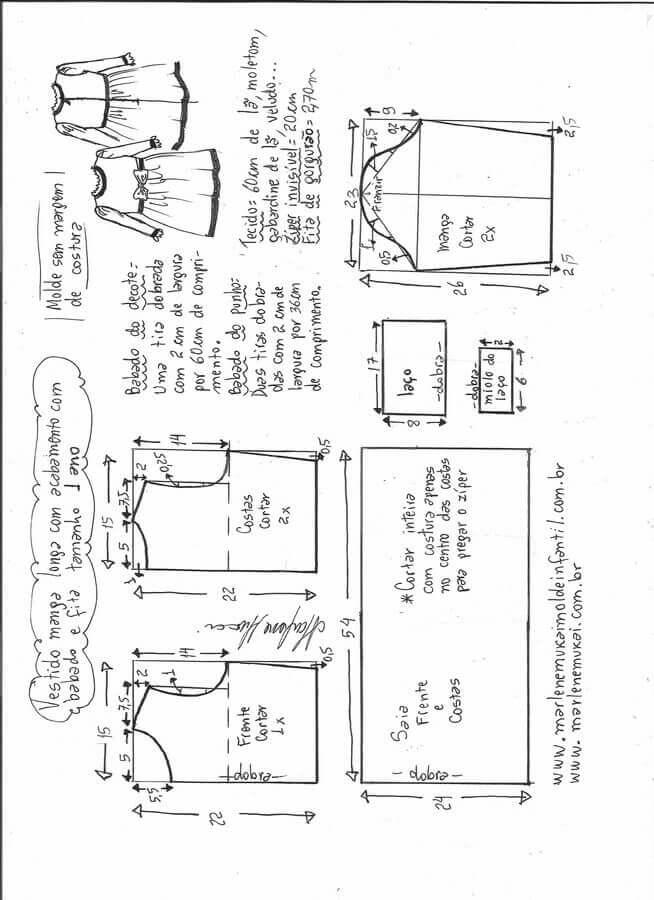 Vestido manga longa com acabamento com
babado e fita tamanho 1 ano
Molde sem margem
de costura
Babado do decote=
Uma tira dobrada
com 2 cm de largura
por 60 cm de compri-
mento.
Babado do punho=
Duas tiras dobra-
das com 2 cm de
largura por 36cm
de comprimento.
Tecido= 60cm de lã, moletom,
gabardine de lã, veludo...
Ziper invisível= 20cm
Fita de gorgurão= 2,70m
15
5
7,5
2
14
1
5,5
22
0,5
Frente
Cortar
1x
dobra
15
5
7,5
2
14
0,25
1
22
0,5
Costas
Cortar
2x
9
23
26
1,5
20
Franzir
1
0,5
2,5
2,5
manga
Cortar
2x
17
8
laço
dobra
2
6
dobra
miolo do
laço
54
24
Saia
Frente
e
Costas
dobra
*Cortar inteira
com costura apenas
no centro das costas
para pregar o zíper
www.marlenemukaimoldeinfantil.com.br
www.marlenemukai.com.br